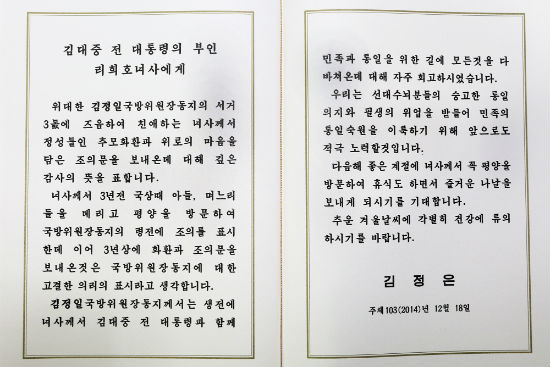 김대중 전 대통령의 부인
리희호녀사에게
위대한 김정일국방위원장동지의 서거
3돐에 즈음하여 친애하는 녀사께서
정성들인 추모화환과 위로의 마음을
담은 조의문을 보내온데 대해 깊은
감사의 뜻을 표합니다.
녀사께서 3년전 국상때 아들, 며느리
들을 데리고 평양을 방문하여
국방위원장동지의 령전에 조의를 표시
한데 이어 3년상에 화환과 조의문을
보내온것은 국방위원장동지에 대한
고결한 의리의 표시라고 생각합니다.
김정일국방위원장동지께서는 생전에
녀사께서 김대중 전 대통령과 함께
민족과 통일을 위한 길에 모든것을 다
바쳐온데 대해 자주 회고하시였습니다.
우리는 선대수뇌분들의 숭고한 통일
의지와 필생의 위업을 받들어 민족의
통일숙원을 이룩하기 위해 앞으로도
적극 노력할것입니다.
다음해 좋은 계절에 녀사께서 꼭 평양을
방문하여 휴식도 하면서 즐거운 나날을
보내게 되시기를 기대합니다.
추운 겨울날씨에 각별히 건강에 류의
하시기를 바랍니다.
김 정 은
주체103(2014)년 12월 18일